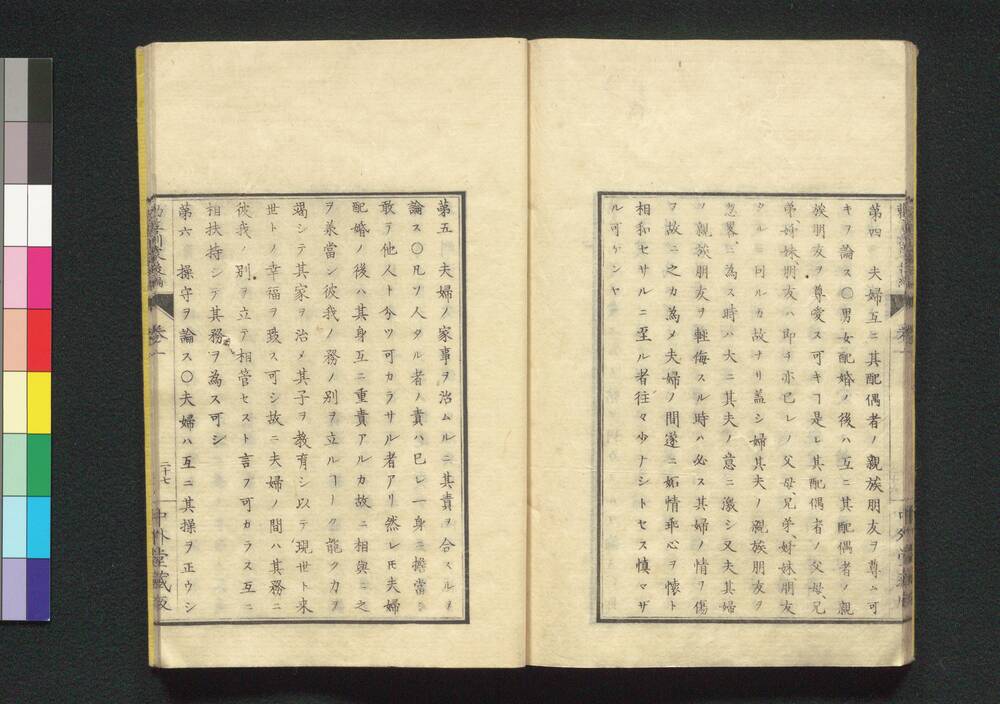 第四　夫婦互ニ其配偶者ノ親族朋友ヲ尊ム可
キヲ論ス〇男女配婚ノ後ハ互ニ其配偶者ノ親
族朋友ヲ尊愛ス可キヿ是レ其配偶者ノ父母、兄
弟、姉妹、朋友ハ即チ亦己レノ父母、兄弟、姉妹、朋友
タルニ同ルカ故ナリ蓋シ婦其夫ノ親族朋友ヲ
忽畧ニ為ス時ハ大ニ其夫ノ意ニ激シ又夫其婦
ノ親族朋友ヲ軽侮スル時ハ必ス其婦ノ情ヲ傷
ヲ故ニ之カ為メ夫婦ノ間遂ニ妬情乖心ヲ懐ト
相和セサルニ至ル者往々少ナシトセス慎マザ
ル可ケンヤ
第五　夫婦ノ家事ヲ治ムルニ其責ヲ合スルヲ
論ス〇凡ソ人タル者ノ責ハ己レ一身ニ擔當シ
敢テ他人ト分ツ可カラサル者アリ然レ𪜈夫婦
配婚ノ後ハ其身互ニ重責アルカ故ニ相與ニ之
ヲ兼當シ彼我ノ務ノ別ヲ立ルヿナク能ク力ヲ
竭シテ其家ヲ治メ其子ヲ教育シ以テ現世ト来
世トノ幸福ヲ致ス可シ故ニ夫婦ノ間ハ其務ニ
彼我ノ別ヲ立テ相管セスト言フ可カラス互ニ
相扶持シテ其務ヲ為ス可シ
第六　操守ヲ論ス〇夫婦ハ互ニ其操ヲ正ウシ
卷一
二十七
中外堂藏版